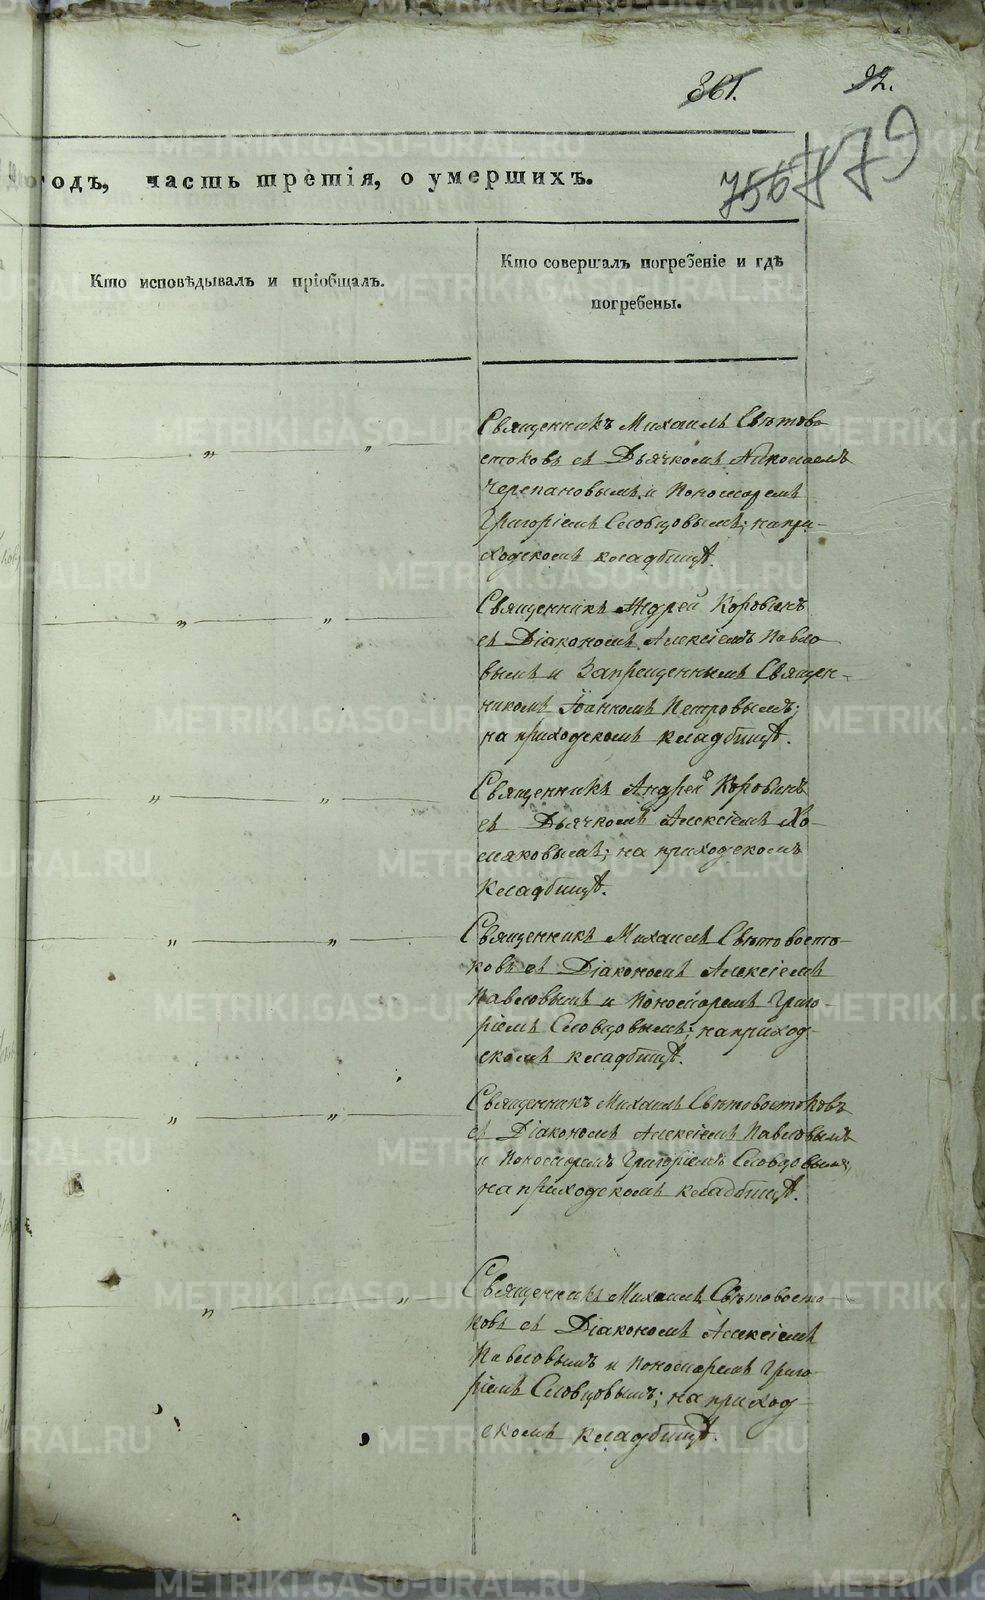 361.
92.
756
179
годъ, часть третія, о умершихъ.
Кто исповѣдывалъ и пріобщалъ.
Кто совершалъ погребеніе и гдѣ
погребены.
Священникъ Михаилъ Свѣтово-
стоковъ съ Дьячкомъ Николаемъ
Черепановымъ и Пономаремъ
Григоріемъ Словцовымъ; на при-
ходскомъ кладбищѣ.
Священникъ Андрей Коровинъ
съ Діакономъ Алексіемъ Павло-
вымъ и Запрещеннымъ Священ-
никомъ Іоанномъ Петровымъ;
на приходскомъ кладбищѣ.
Священникъ Андрей Коровинъ
съ Дьячкомъ Алексіемъ Хо-
мяковымъ; на приходскомъ
кладбищѣ.
Священникъ Михаилъ Свѣтовосто-
ковъ съ Діакономъ Алексіемъ
Павловымъ и Пономаремъ Григо-
ріемъ Словцовымъ; на приход-
скомъ кладбищѣ.
Священникъ Михаилъ Свѣтовостоковъ
съ Діакономъ Алексіемъ Павловымъ
и Пономаремъ Григоріемъ Словцовымъ;
на приходскомъ кладбищѣ.
Священникъ Михаилъ Свѣтовосто-
ковъ съ Діакономъ Алексіемъ
Павловымъ и Пономаремъ Григо-
ріемъ Словцовымъ; на приход-
скомъ кладбищѣ.
METRIKI.GASO-URAL.RU